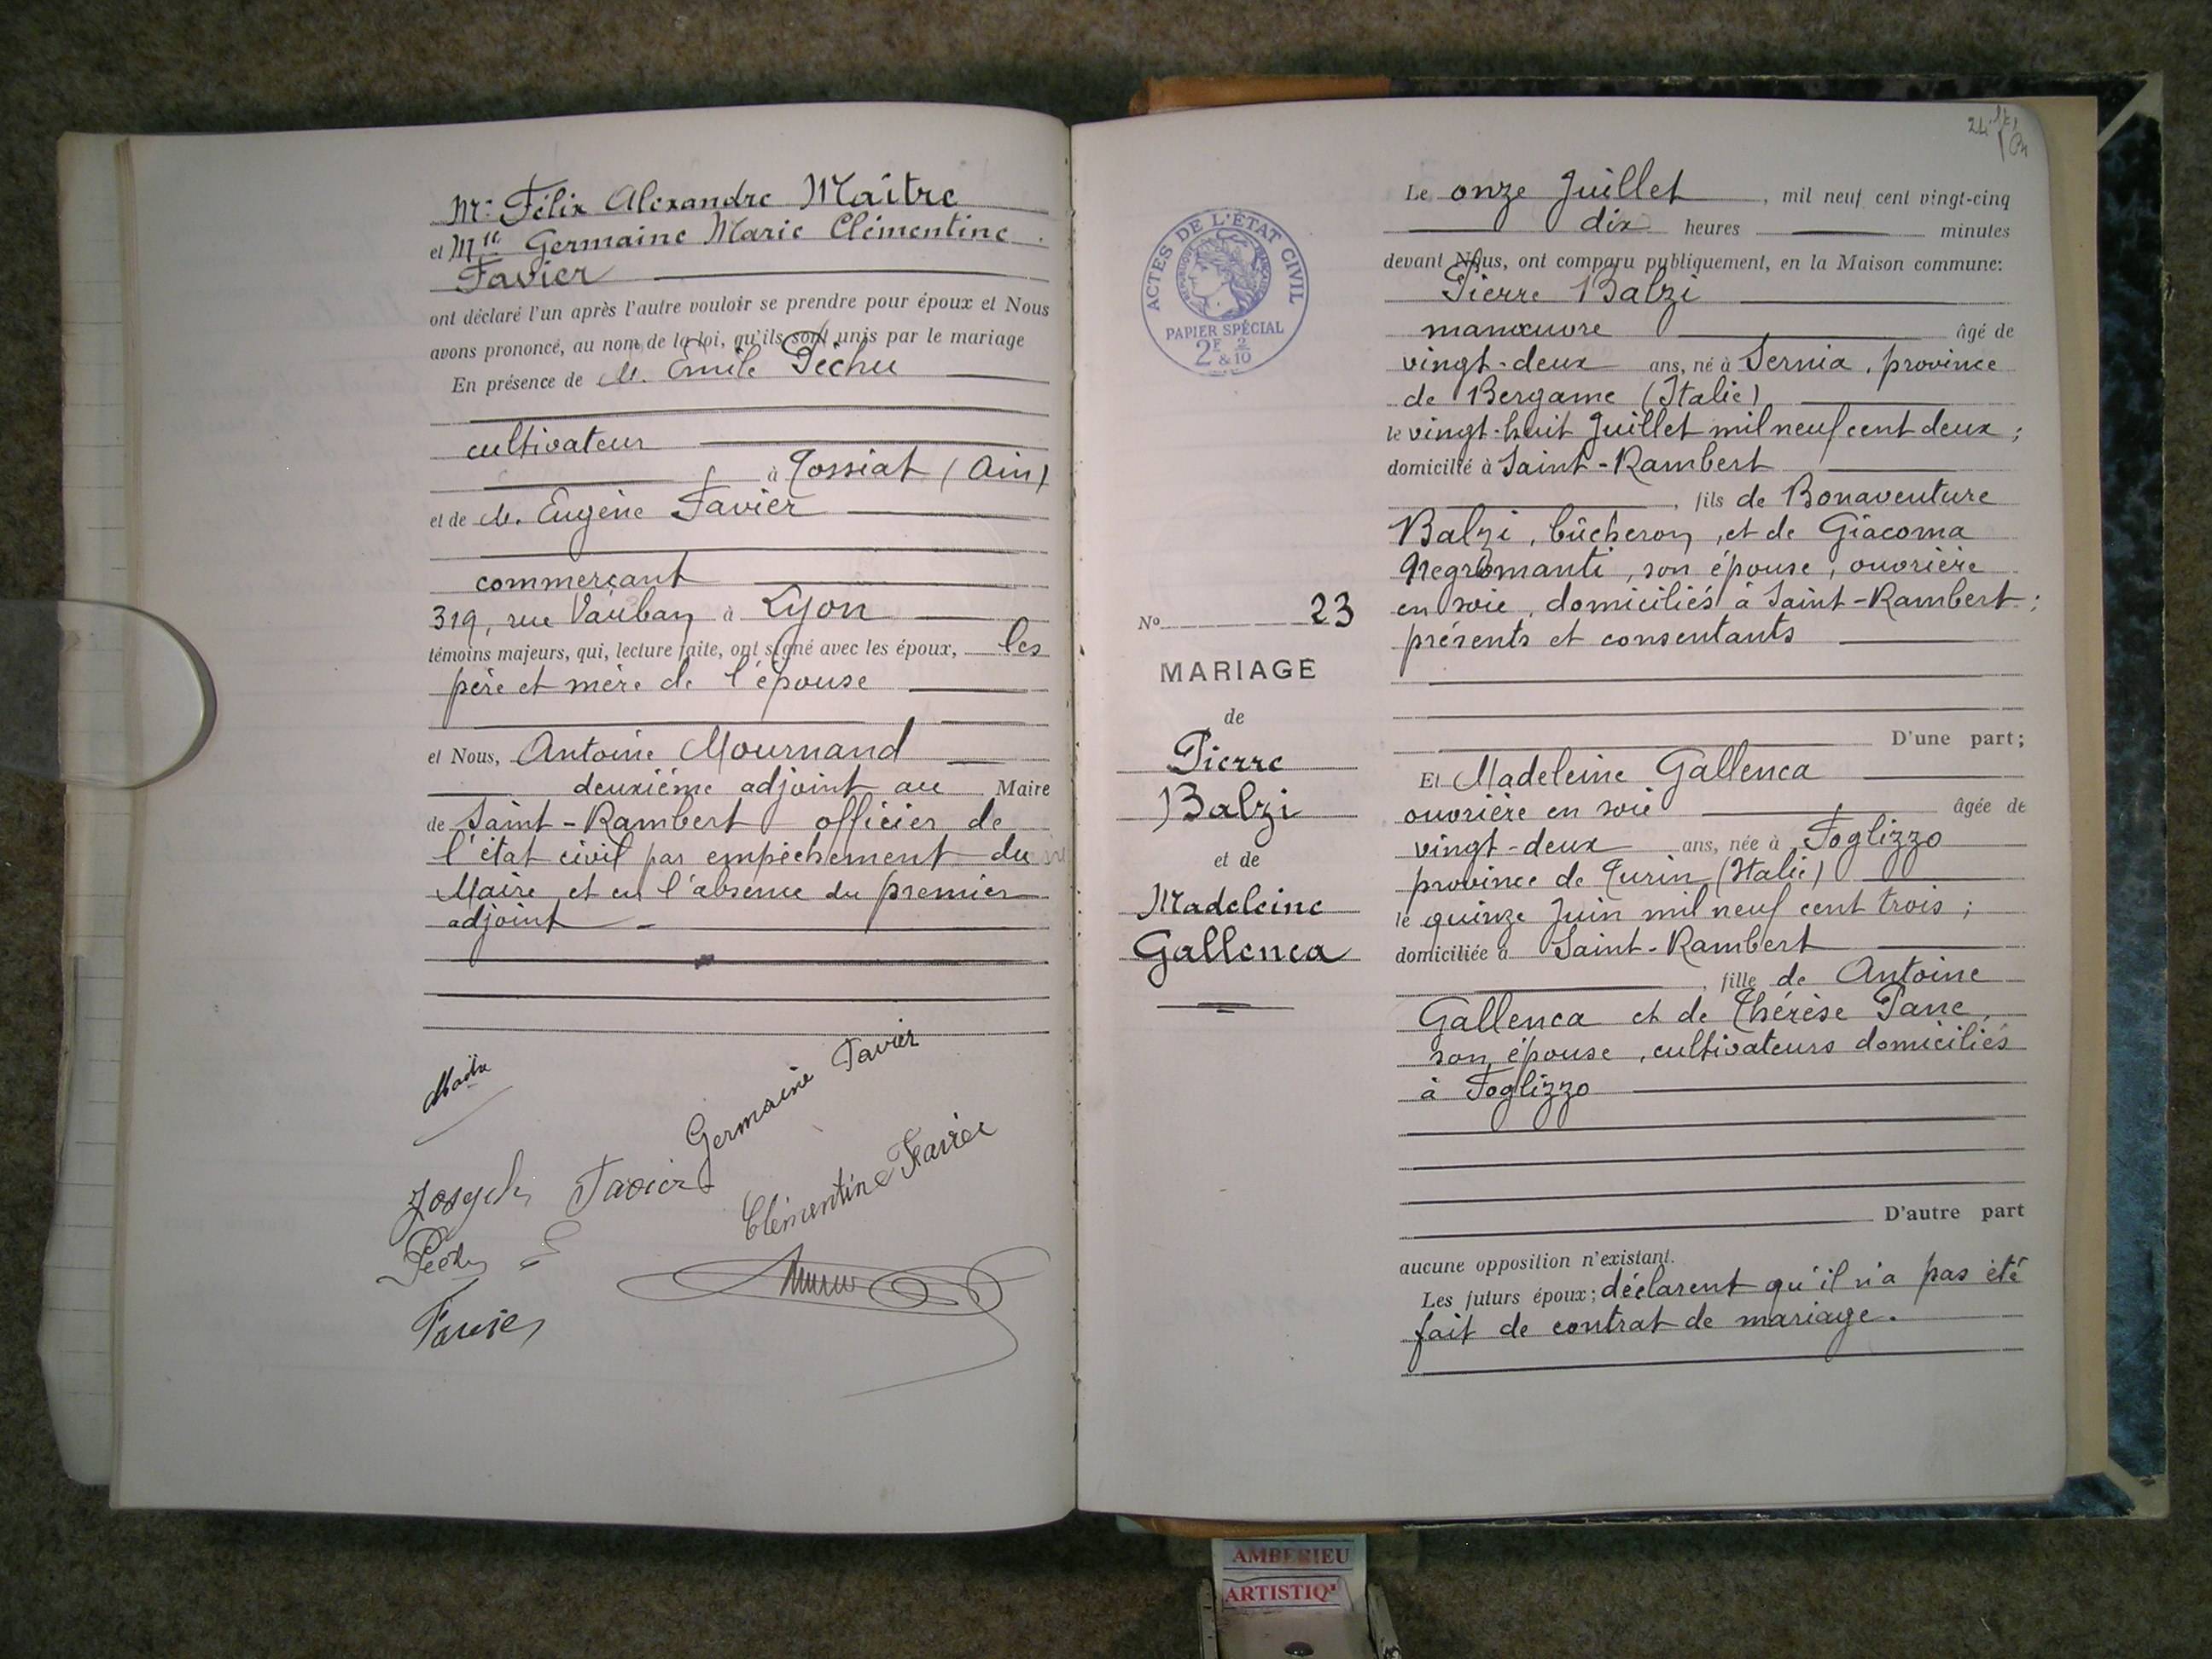 Mr Félix Alexandre Maître
et Mlle Germaine Marie Clémentine
Favier
ont déclaré l'un après l'autre vouloir se prendre pour époux et Nous
avons prononcé, au nom de la loi, qu'ils sont unis par le mariage
En présence de M. Emile Péchu
cultivateur
à Tossiat (Ain)
et de M. Eugène Favier
commerçant
319, rue Vauban à Lyon
témoins majeurs, qui, lecture faite, ont signé avec les époux, les
père et mère de l'épouse
et Nous, Antoine Mournand
deuxième adjoint au Maire
de Saint-Rambert officier de
l'état civil par empêchement du
Maire et en l'absence du premier
adjoint
Maître
Germaine Favier
Joseph Favier
Clémentine Favier
Péchu E
Favier
ACTES DE L'ÉTAT CIVIL
RÉPUBLIQUE FRANÇAISE
PAPIER SPÉCIAL
2F & 2/10
No 23
MARIAGE
de
Pierre
Balzi
et de
Madeleine
Gallenca
Le onze Juillet, mil neuf cent vingt-cinq
dix heures minutes
devant Nous, ont comparu publiquement, en la Maison commune:
Pierre Balzi
manœuvre âgé de
vingt-deux ans, né à Sernia, province
de Bergame (Italie)
le vingt-huit Juillet mil neuf cent deux;
domicilié à Saint-Rambert
, fils de Bonaventure
Balzi, bûcheron, et de Giacoma
Negromanti, son épouse, ouvrière
en soie, domiciliés à Saint-Rambert;
présents et consentants
D'une part;
Et Madeleine Gallenca
ouvrière en soie âgée de
vingt-deux ans, née à Foglizzo
province de Turin (Italie)
le quinze Juin mil neuf cent trois;
domiciliée à Saint-Rambert
, fille de Antoine
Gallenca et de Thérèse Pane,
son épouse, cultivateurs domiciliés
à Foglizzo
D'autre part
aucune opposition n'existant.
Les futurs époux; déclarent qu'il n'a pas été
fait de contrat de mariage.
AMBERIEU
ARTISTIQ